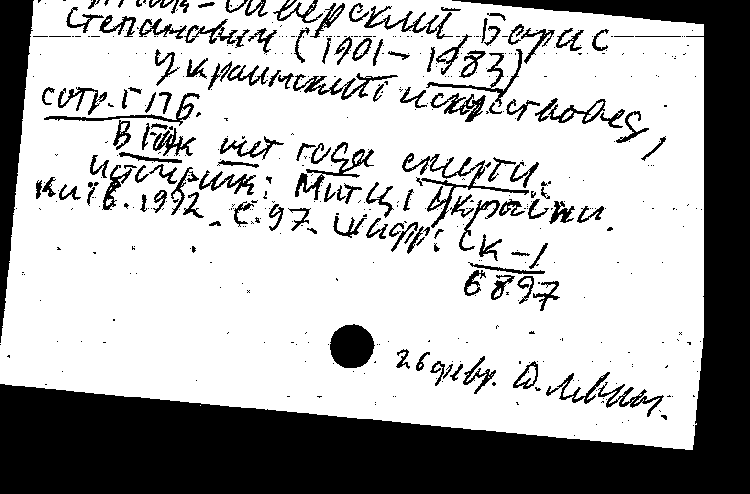 Степанович (1901-1983)
Борис
украинский искусствовед,
сотр. ГПБ.
В ГАК нет года смерти.
источник: Митці України.
Київ. 1992. С. 97. Шифр: СК-1
6897
26 февр.